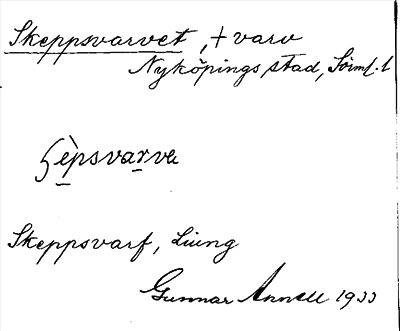 Skeppsvarvet, + varv
Nyköpings stad, Sörml. l
ʃèpsvarve
Skeppsvarf, Liung
Gunnar Annell 1933